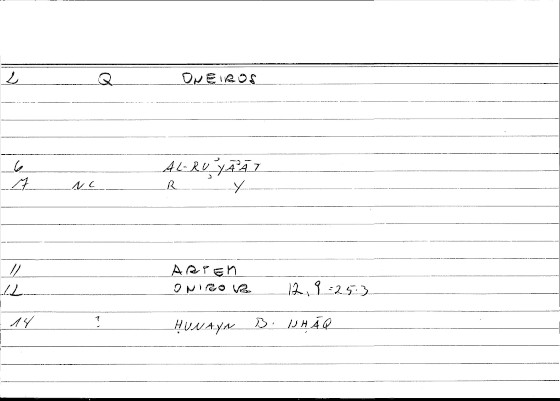 2 Q ONEIROS
6 AL-RUʾYĀʾĀT
17 NC R ʾ Y
11 ARTEM
12 ONIROKR 12,9=25.3
14 ? ḤUNAYN B. ISḤĀQ